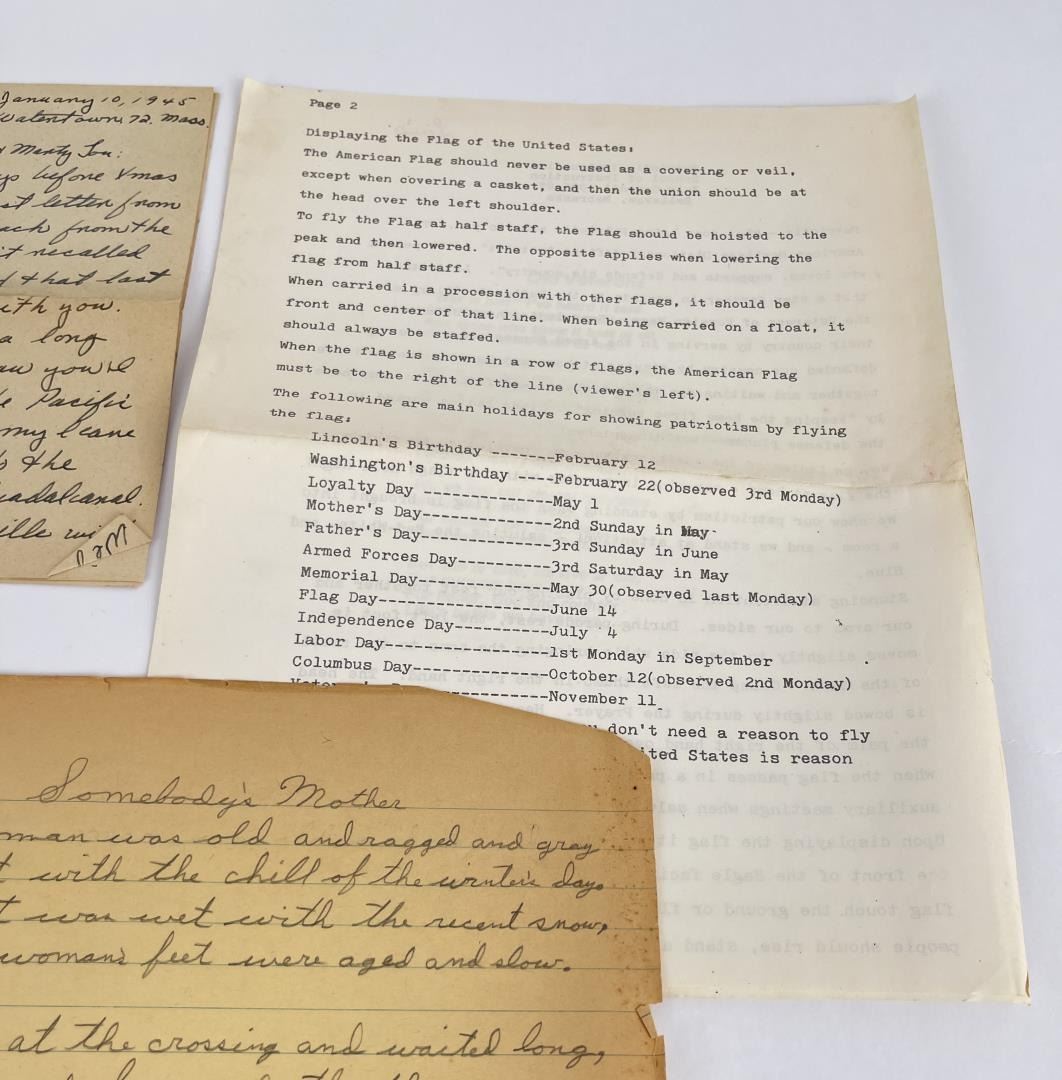 January 10, 1945
Watertown, 72. Mass.
Marty Lou:
before Xmas
st letter from
ach from the
it recalled
d & that last
ith you.
a long
au you'll
e Pacific
my leave
the
uadalcanal.
ille wi
Page 2
Displaying the Flag of the United States:
The American Flag should never be used as a covering or veil,
except when covering a casket, and then the union should be at
the head over the left shoulder.
To fly the Flag at half staff, the Flag should be hoisted to the
peak and then lowered. The opposite applies when lowering the
flag from half staff.
When carried in a procession with other flags, it should be
front and center of that line. When being carried on a float, it
should always be staffed.
When the flag is shown in a row of flags, the American Flag
must be to the right of the line (viewer's left).
The following are main holidays for showing patriotism by flying
the flag:
Lincoln's Birthday -------February 12
Washington's Birthday ----February 22(observed 3rd Monday)
Loyalty Day --------------May 1
Mother's Day--------------2nd Sunday in May
Father's Day--------------3rd Sunday in June
Armed Forces Day----------3rd Saturday in May
Memorial Day--------------May 30(observed last Monday)
Flag Day------------------June 14
Independence Day----------July 4
Labor Day-----------------1st Monday in September
Columbus Day--------------October 12(observed 2nd Monday)
-----------November 11
don't need a reason to fly
ited States is reason
Somebody's Mother
man was old and ragged and gray
t with the chill of the winter's day.
t was wet with the recent snow,
woman's feet were aged and slow.
at the crossing and waited long,